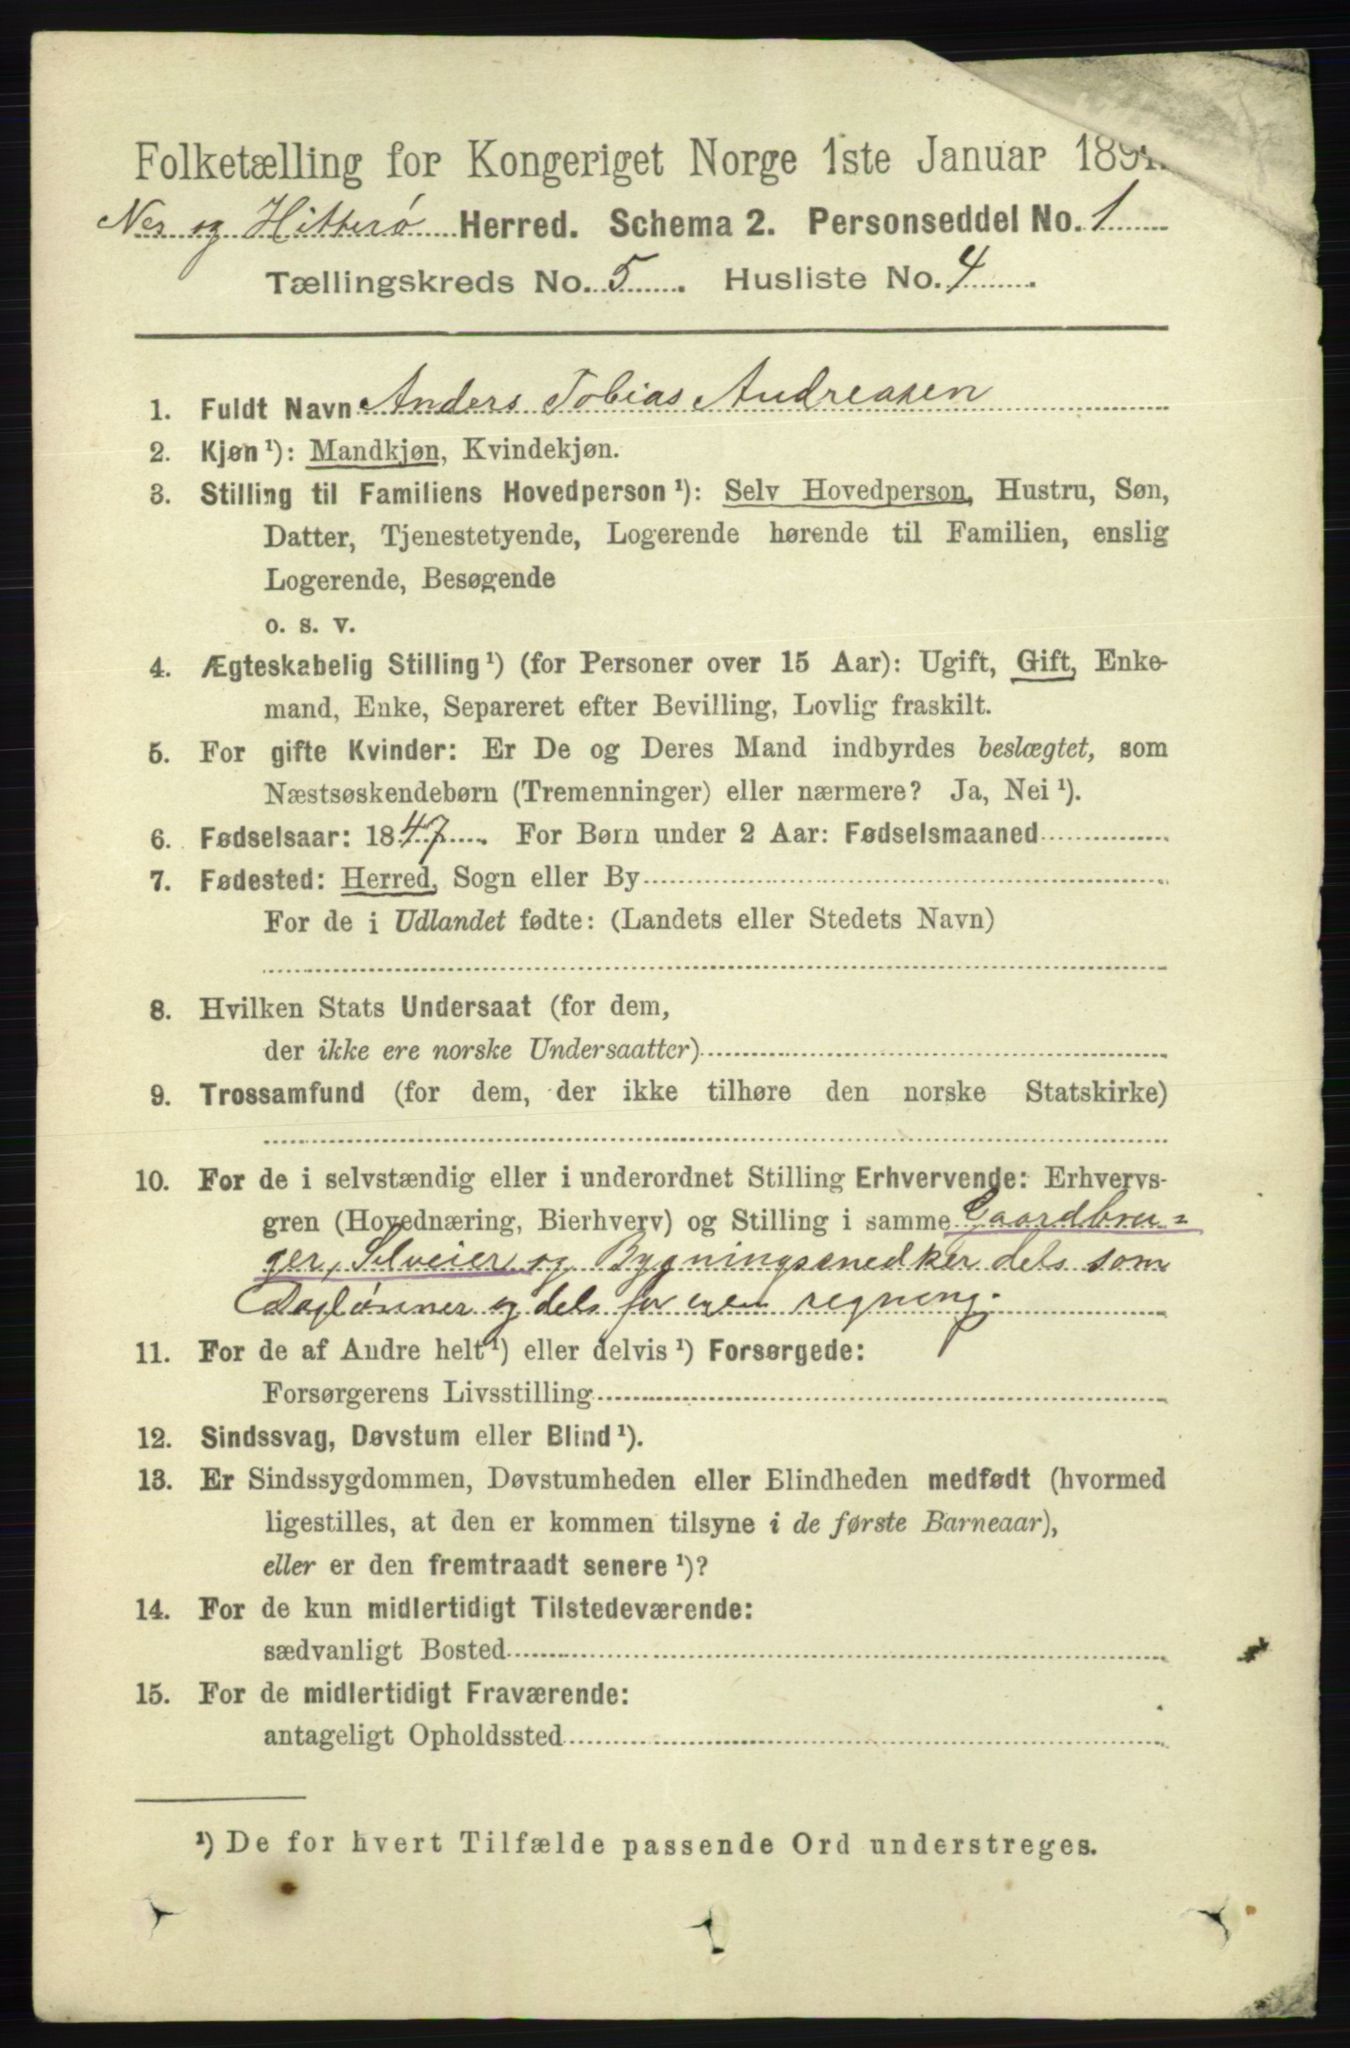 Folketælling for Kongeriget Norge 1ste Januar 1891.
Nes og Hitterø Herred. Schema 2. Personseddel No. 1
Tællingskreds No. 5. Husliste No. 4.
1. Fuldt Navn Anders Tobias Andreasen
2. Kjøn ¹): Mandkjøn, Kvindekjøn.
3. Stilling til Familiens Hovedperson ¹): Selv Hovedperson, Hustru, Søn,
Datter, Tjenestetyende, Logerende hørende til Familien, enslig
Logerende, Besøgende
o. s. v.
4. Ægteskabelig Stilling ¹) (for Personer over 15 Aar): Ugift, Gift, Enke-
mand, Enke, Separeret efter Bevilling, Lovlig fraskilt.
5. For gifte Kvinder: Er De og Deres Mand indbyrdes beslægtet, som
Næstsøskendebørn (Tremenninger) eller nærmere? Ja, Nei ¹).
6. Fødselsaar: 1847. For Børn under 2 Aar: Fødselsmaaned
7. Fødested: Herred, Sogn eller By
For de i Udlandet fødte: (Landets eller Stedets Navn)
8. Hvilken Stats Undersaat (for dem,
der ikke ere norske Undersaatter)
9. Trossamfund (for dem, der ikke tilhøre den norske Statskirke)
10. For de i selvstændig eller i underordnet Stilling Erhvervende: Erhvervs-
gren (Hovednæring, Bierhverv) og Stilling i samme Gaardbru=
ger, Selveier og Bygningssnedker dels som
Daglønner og dels for egen regning.
11. For de af Andre helt ¹) eller delvis ¹) Forsørgede:
Forsørgerens Livsstilling
12. Sindssvag, Døvstum eller Blind ¹).
13. Er Sindssygdommen, Døvstumheden eller Blindheden medfødt (hvormed
ligestilles, at den er kommen tilsyne i de første Barneaar),
eller er den fremtraadt senere ¹)?
14. For de kun midlertidigt Tilstedeværende:
sædvanligt Bosted
15. For de midlertidigt Fraværende:
antageligt Opholdssted
¹) De for hvert Tilfælde passende Ord understreges.